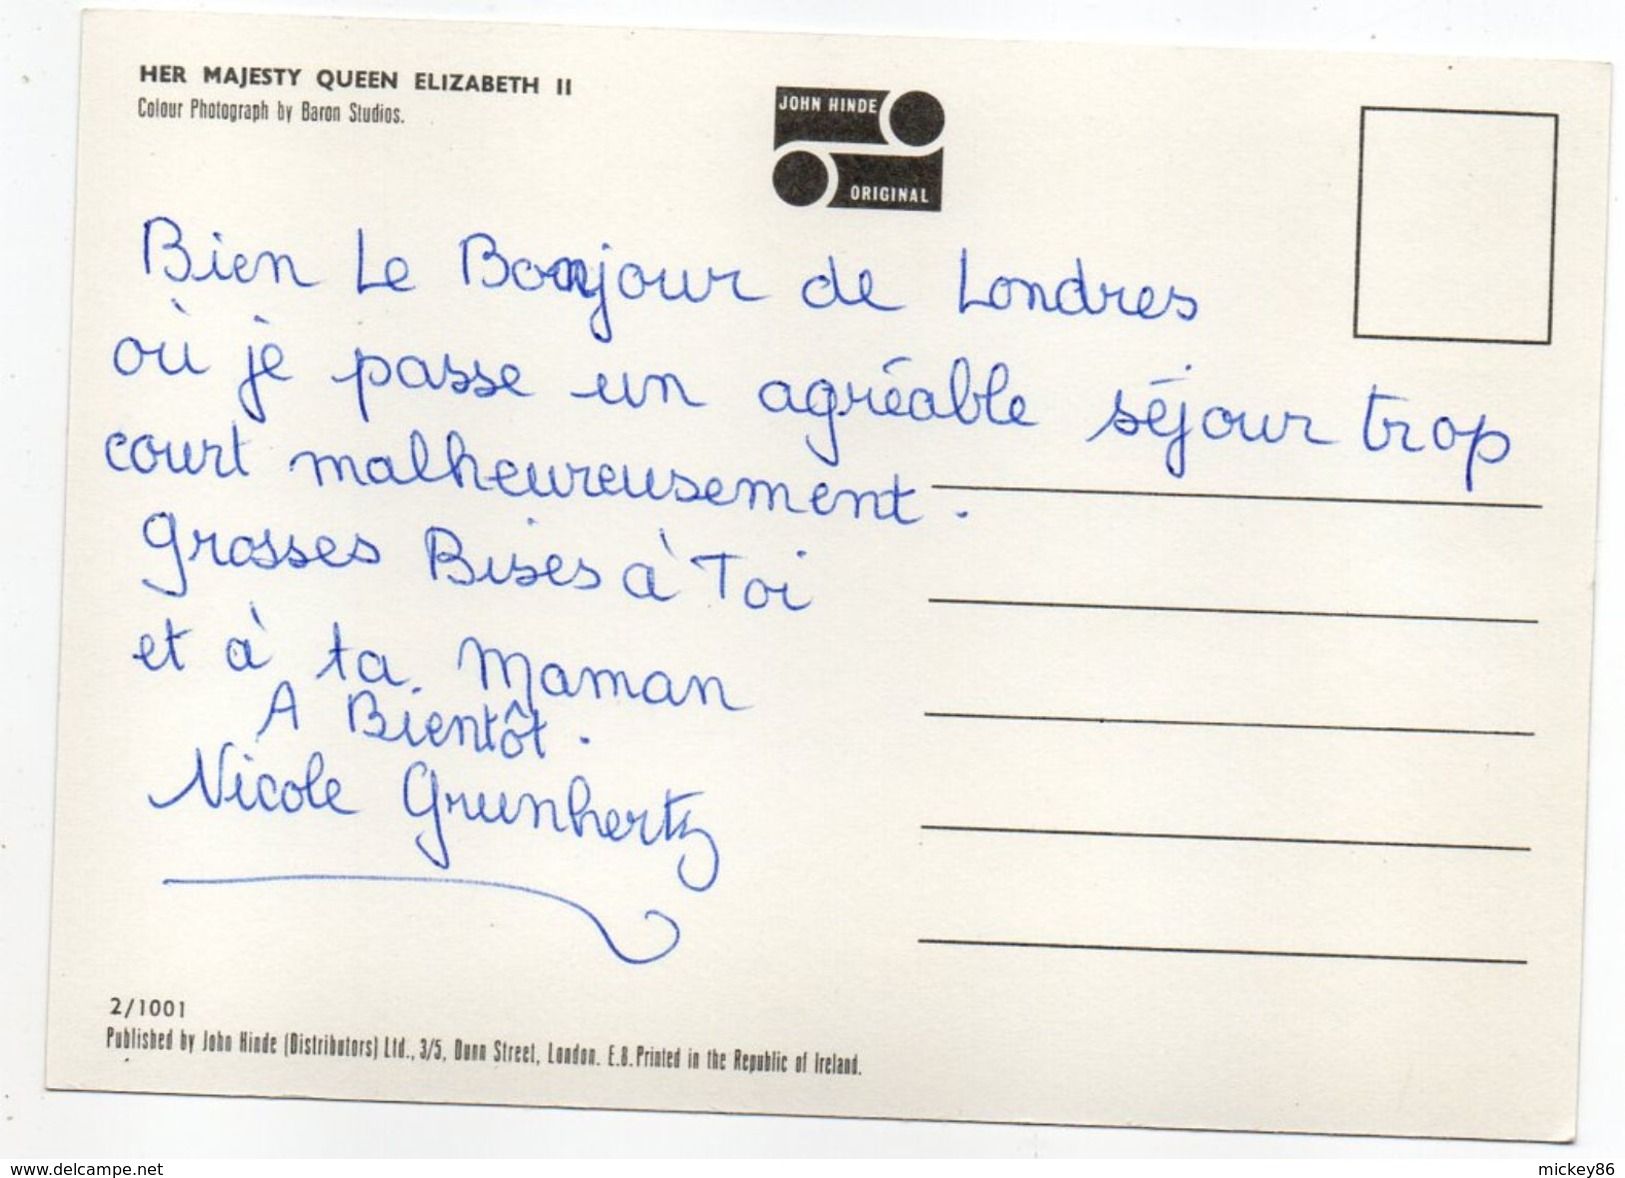 HER MAJESTY QUEEN ELIZABETH II
Colour Photograph by Baron Studios.
JOHN HINDE
ORIGINAL
Bien Le Bonjour de Londres
où je passe un agréable séjour trop
court malheureusement.
Grosses Bises à Toi
et à ta Maman
A Bientôt.
Nicole Grunhertz
2/1001
Published by John Hinde (Distributors) Ltd., 3/5, Dunn Street, London. E.8. Printed in the Republic of Ireland.
www.delcampe.net
mickey86